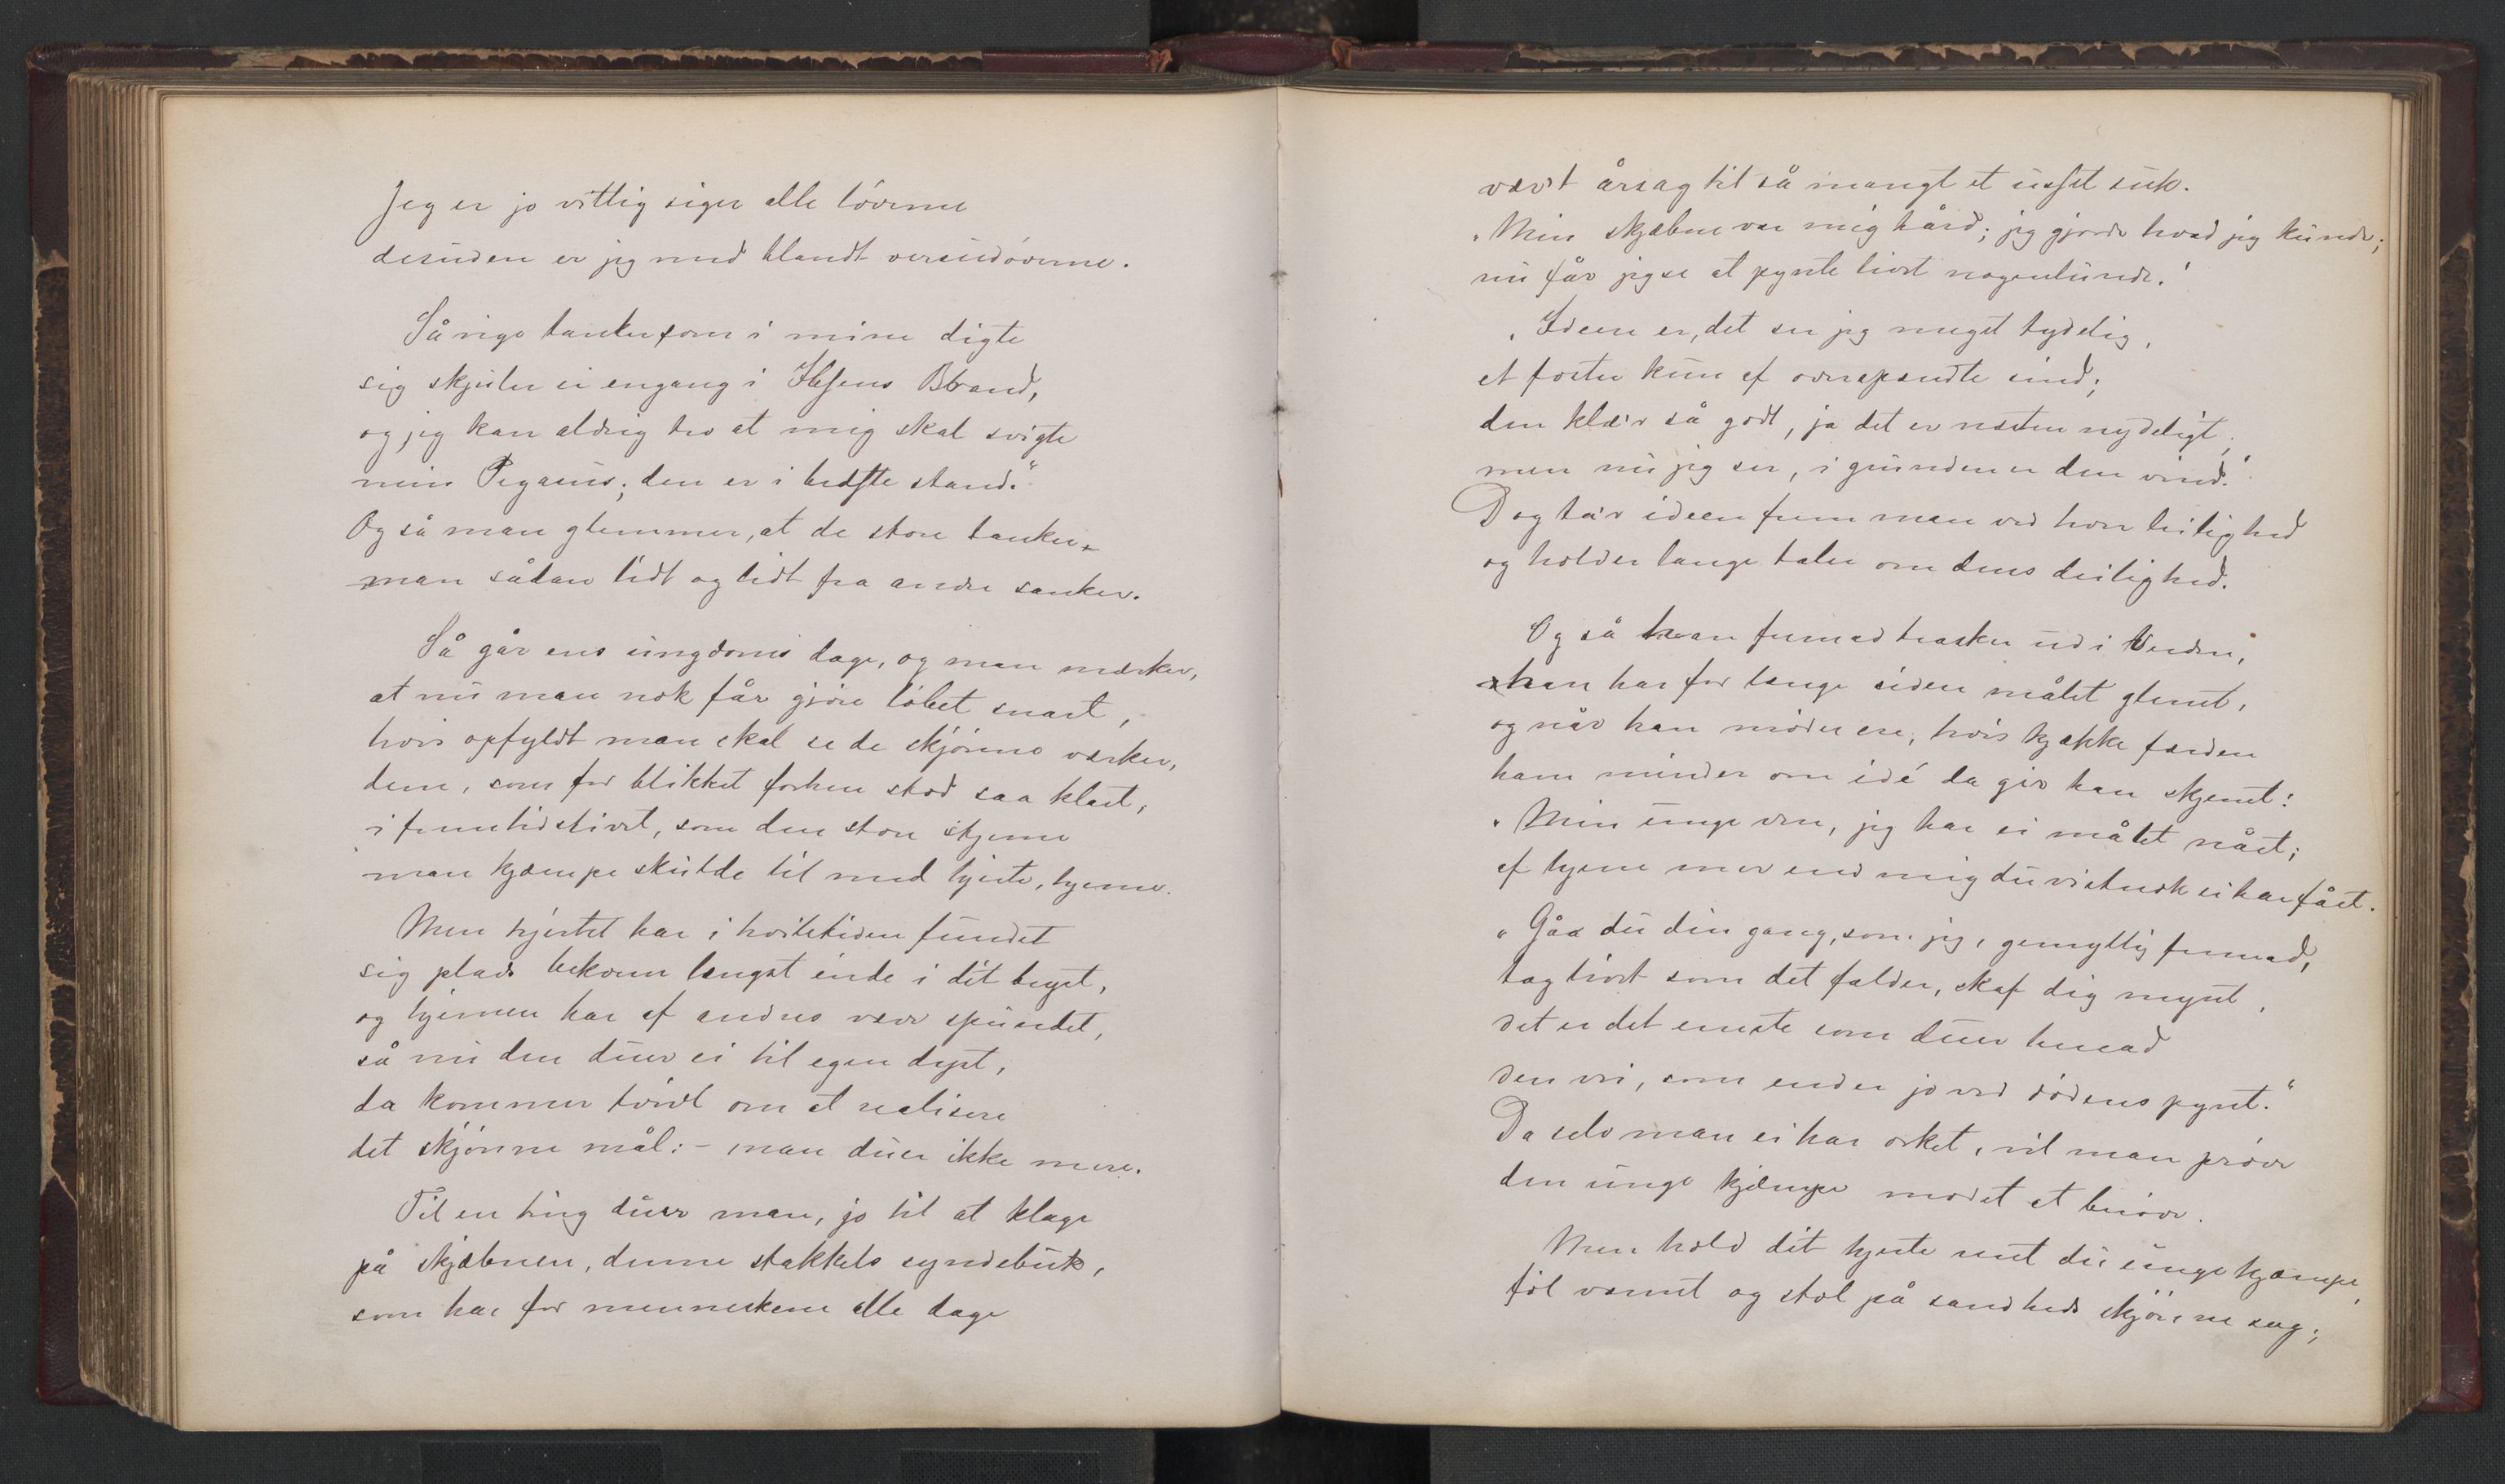 Jeg er jo vittig siger alle løverne
desuden er jeg med blandt versudøverne.
Så rige tanker som i mine digte
sig skjuler ei engang i Ibsens Brand,
og jeg kan aldrig tro at mig skal svigte
min Pegasus; den er i bedste stand."
Og så man glemmer, at de store tanker
man sådan lidt og lidt fra andre sanker.
Så går ens ungdoms dage, og man mærker,
at nu man nok får gjøre løbet snart,
hvis opfyldt man skal se de skjønne værker,
dem, som for blikket forhen stod saa klart,
i fremtidslivet, som den store stjerne
man kjæmpe skulde til med hjerte, hjerne.
Men hjertet har i hviletiden fundet
sig plads bekvem længst inde i dit bryst,
og hjernen har af andres væv spundet,
så nu den duer ei til egen dyst,
da kommer tvivl om at realisere
det skjønne mål: - man duer ikke mere.
Til en ting duer man, jo til at klage
på skjæbnen, denne stakkels syndebuk,
som har for menneskene alle dage
vært årsag til så mangt et usselt suk.
"Min skjæbne var mig hård; jeg gjorde hvad jeg kunde;
nu får jeg se at pynte livet nogenlunde."
"Ideen er, det ser jeg meget tydelig,
et foster kun af overspændte sind;
den klæ'r så godt, ja det er næsten nydeligt;
men nu jeg ser, i grunden er den vind."
Dog ta'r ideen frem man ved hver leilighed
og holder lange taler om dens deilighed.
Og så han fremad trasker ud i Verden,
han har for længe siden målet glemt,
og når han møder en, hvis kjække færden
ham minder om idé da gir han skjemt:
"Min unge ven, jeg har ei målet nået;
af hjerne mer end mig du vistnok ei har fået.
"Gåa du din gang, som jeg, gemytlig fremad,
tag livet som det falder, skaf dig mynt,
det er det eneste som duer
den vei, som ender jo ved dødens pynt."
Da selv man ei har orket, vil man prøve
den unge kjæmpe modet at berøve.
Men hold dit hjerte rent du unge kjæmpe,
føl varmt og stol på sandheds skjønne sag;